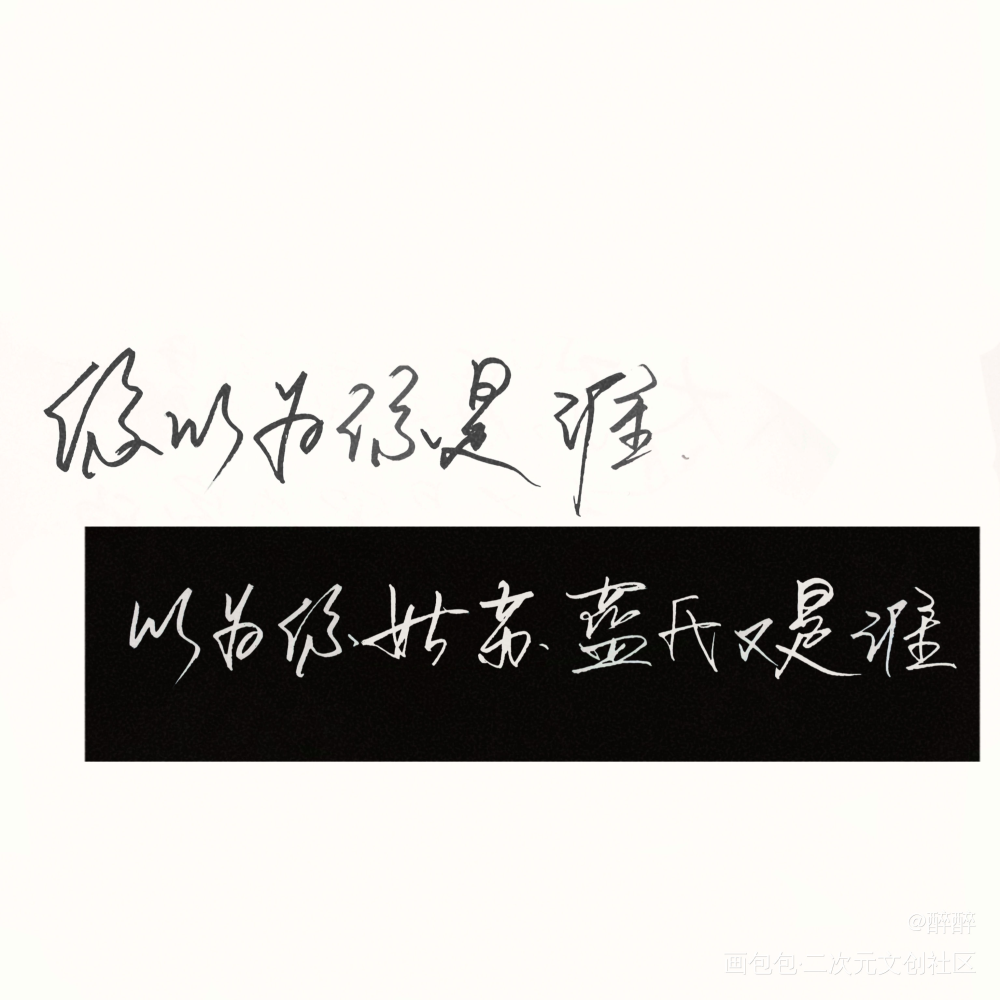 你以为你是谁.
以为你姑苏蓝氏又是谁
@醉醉
画包包·二次元文创社区